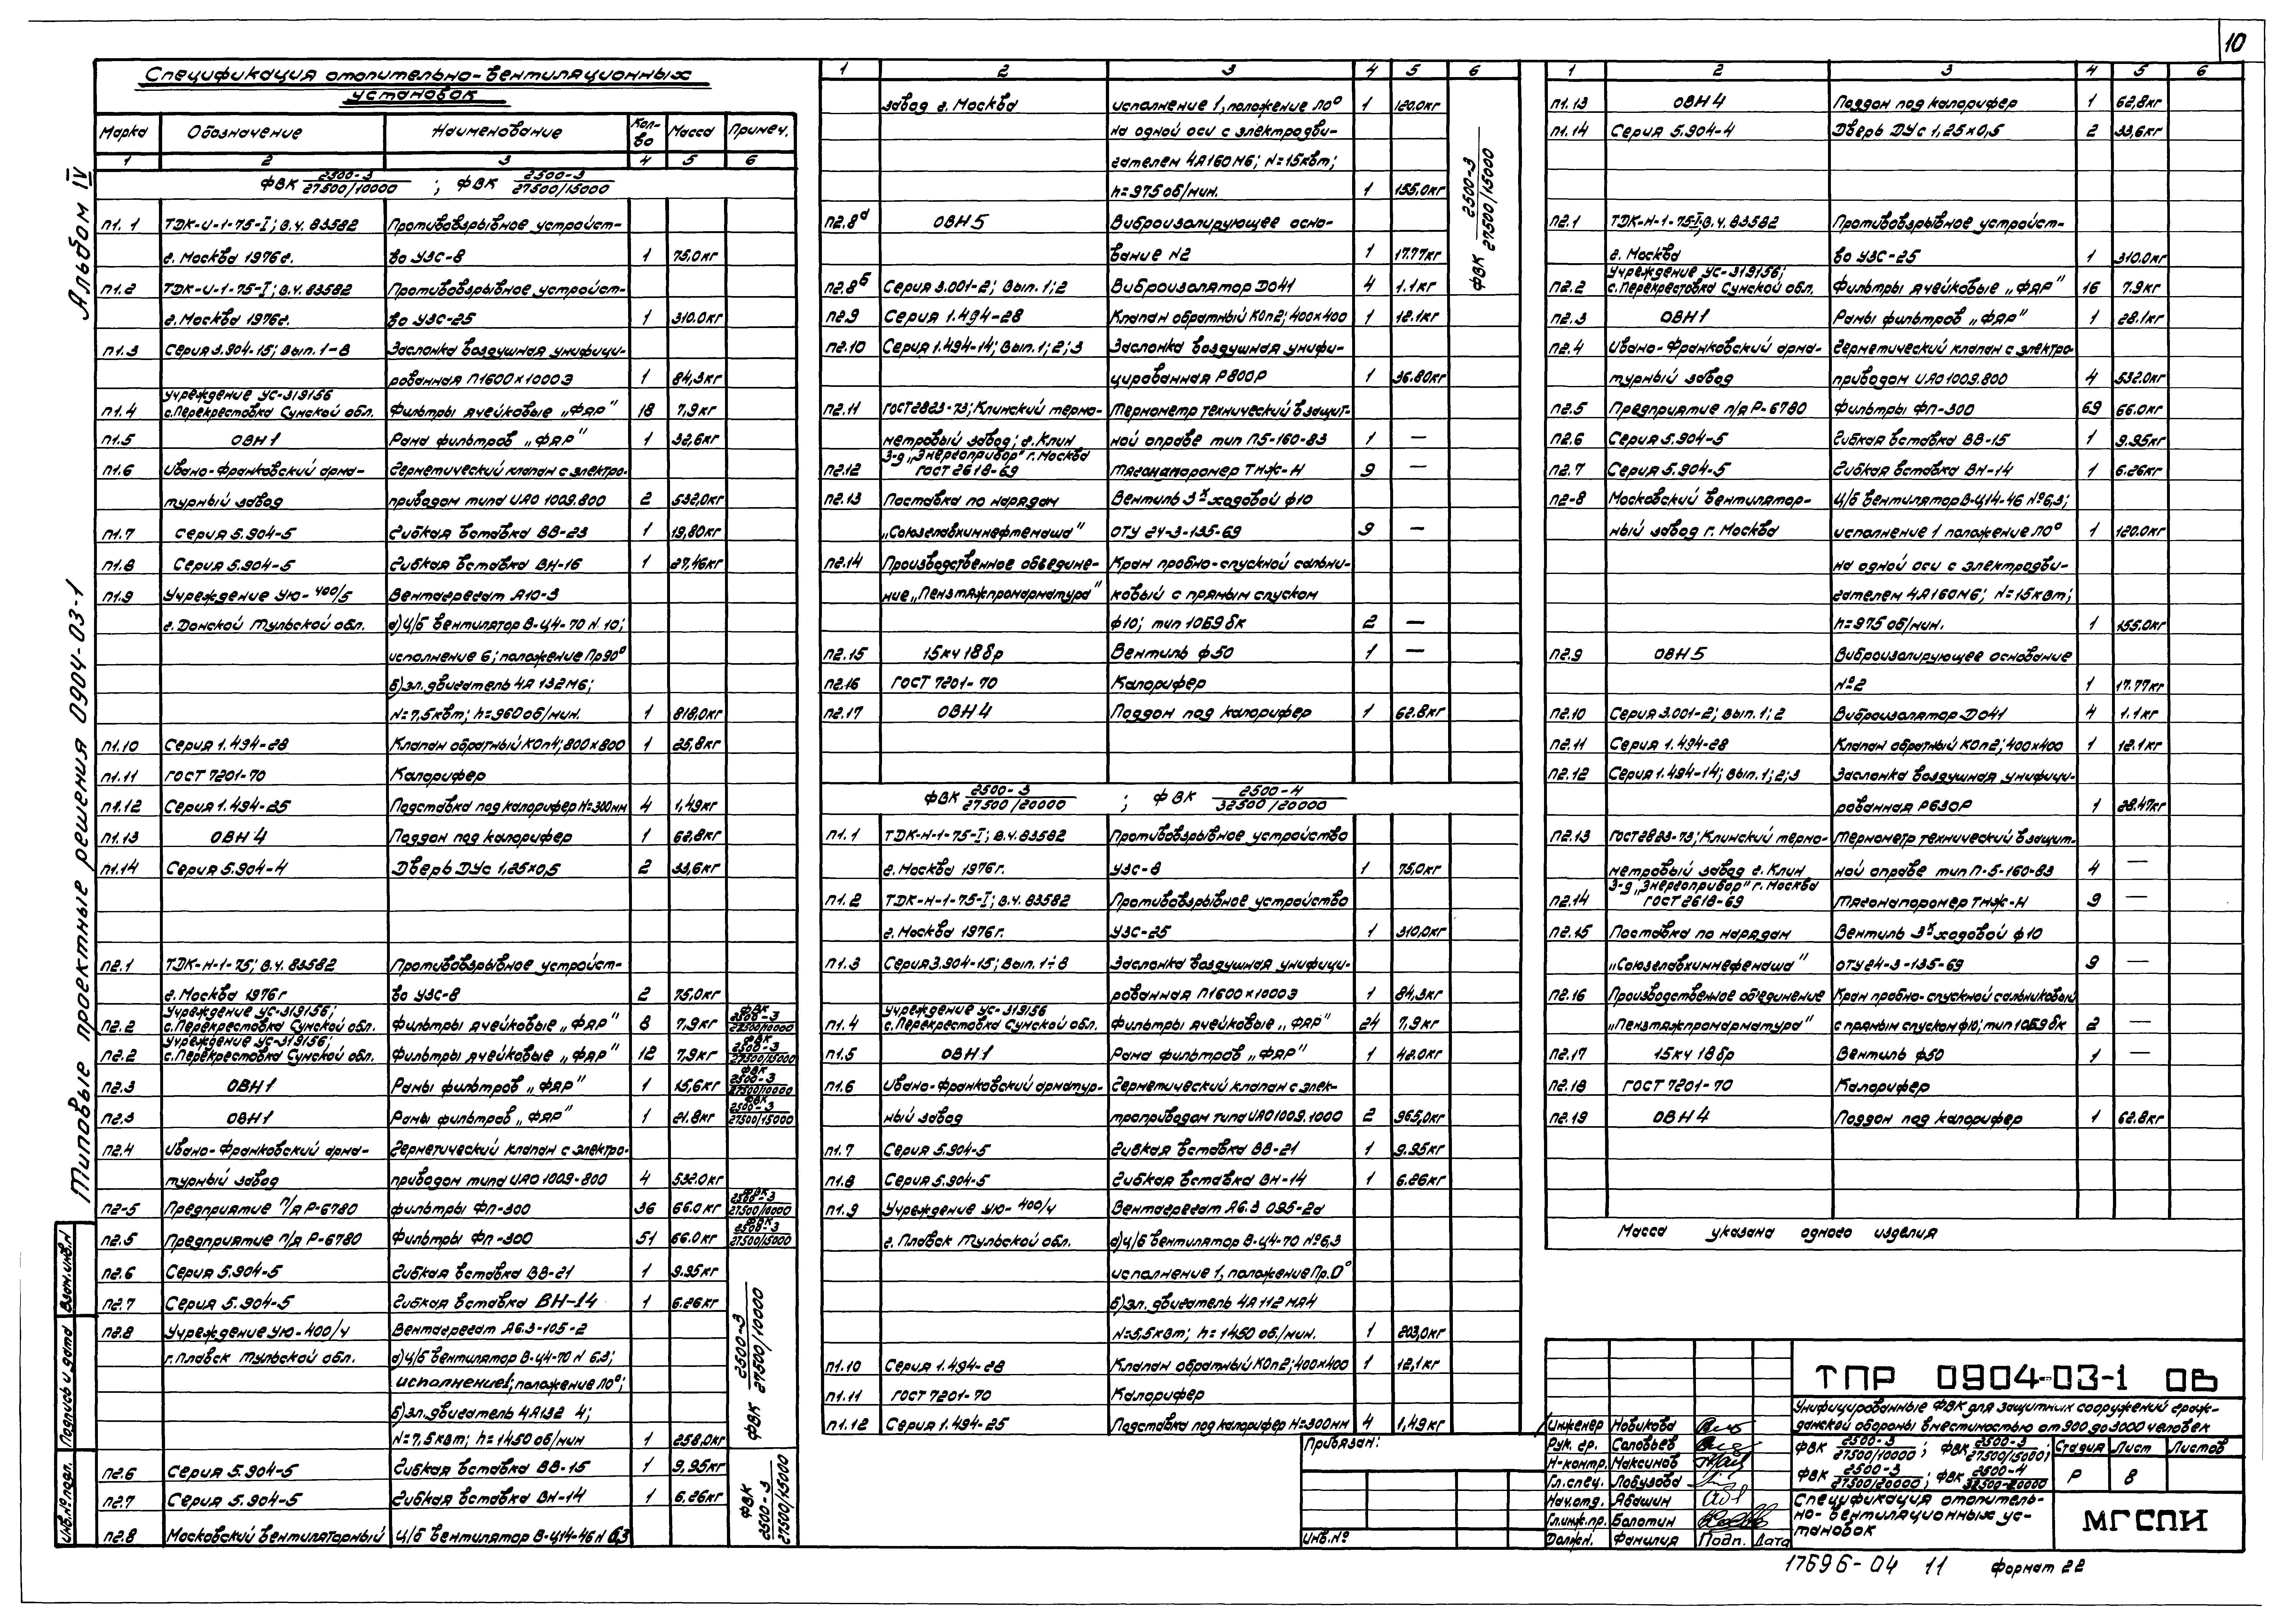 10
Альбом IV
Типовые проектные решения 0904-03-1
Спецификация отопительно-вентиляционных
установок
Марка Обозначение Наименование Кол-во Масса Примеч.
1 2 3 4 5 6
ФВК 2500-3/27500/10000 ; ФВК 2500-3/27500/15000
П1.1 ТДК-И-1-75-I; В.Ч. 83582 Противовзрывное устройст-
г. Москва 1976г. во УЗС-8 1 75,0кг
П1.2 ТДК-И-1-75-I; В.Ч. 83582 Противовзрывное устройст-
г. Москва 1976г. во УЗС-25 1 310.0кг
П1.3 Серия 3.904-15; Вып. 1-8 Заслонка воздушная унифици-
рованная П1600х1000Э 1 84,3кг
учреждение УС-319156
П1.4 с.Перекрестовка Сумской обл. Фильтры ячейковые „ФЯР" 18 7,9кг
П1.5 ОВН1 Рама фильтров „ФЯР" 1 32,6кг
П1.6 Ивано-Франковский арма- Герметический клапан с электро-
турный завод приводом типа ИА01009.800 2 532,0кг
П1.7 Серия 5.904-5 Гибкая вставка ВВ-23 1 19,80кг
П1.8 Серия 5.904-5 Гибкая вставка ВН-16 1 27,46кг
П1.9 Учреждение УЮ-400/5 Вентагрегат А10-3
г. Донской Тульской обл. а) ц/б вентилятор В-Ц4-70 N 10;
исполнение 6; положение Пр90°
б) эл. двигатель 4А 132М6;
N=7,5квт; h=960об/мин. 1 818,0кг
П1.10 Серия 1.494-28 Клапан обратный КОп4; 800х800 1 25,8кг
П1.11 ГОСТ 7201-70 Калорифер
П1.12 Серия 1.494-25 Подставка под калорифер Н=300мм 4 1,49кг
П1.13 ОВН4 Поддон под калорифер 1 62,8кг
П1.14 Серия 5.904-4 Дверь ДУс 1,25х0,5 2 33,6кг
П2.1 ТДК-Н-1-75; В.Ч. 83582 Противовзрывное устройст-
г. Москва 1976г во УЗС-8 2 75,0кг
учреждение УС-319156;
П2.2 с.Перекрестовка Сумской обл. Фильтры ячейковые „ФЯР" 8 7,9кг ФВК 2500-3/27500/10000
учреждение УС-319156;
П2.2 с.Перекрестовка Сумской обл. Фильтры ячейковые „ФЯР" 12 7,9кг ФВК 2500-3/27500/15000
П2.3 ОВН1 Рамы фильтров „ФЯР" 1 15,6кг ФВК 2500-3/27500/10000
П2.3 ОВН1 Рамы фильтров „ФЯР" 1 21.8кг ФВК 2500-3/27500/15000
П2.4 Ивано-Франковский арма- Герметический клапан с электро-
турный завод приводом типа ИА01009-800 4 532.0кг
П2-5 Предприятие П/Я Р-6780 Фильтры ФП-300 36 66.0кг ФВК 2500-3/27500/10000
П2.5 Предприятие П/Я Р-6780 Фильтры ФП-300 51 66.0кг ФВК 2500-3/27500/15000
П2.6 Серия 5.904-5 Гибкая вставка ВВ-21 1 9.95кг
П2.7 Серия 5.904-5 Гибкая вставка ВН-14 1 6.26кг
П2.8 Учреждение УЮ-400/4 Вентагрегат А6.3-105-2
г. Плавск Тульской обл. а) ц/б вентилятор В-Ц4-70 N 6.3;
исполнение1; положение Л0°;
б) эл. двигатель 4А132 4;
N=7,5квт; h=1450об/мин 1 258.0кг
ФВК 2500-3/27500/10000
П2.6 Серия 5.904-5 Гибкая вставка ВВ-15 1 9,95кг
П2.7 Серия 5.904-5 Гибкая вставка ВН-14 1 6.26кг
П2.8 Московский вентиляторный Ц/б вентилятор В-Ц14-46 N 6,3
ФВК 2500-3/27500/15000
1 2 3 4 5 6
завод г. Москва исполнение 1, положение Л0° 1 120.0кг
на одной оси с электродви-
гателем 4А160М6; N=15квт;
h=975об/мин. 1 155,0кг
П2.8а ОВН5 Виброизолирующее осно-
вание N2 1 17.77кг
П2.8б Серия 3.001-2; Вып. 1; 2 Виброизолятор ДО41 4 1.1кг
П2.9 Серия 1.494-28 Клапан обратный КОп2; 400х400 1 12.1кг
П2.10 Серия 1.494-14; Вып. 1; 2; 3 Заслонка воздушная унифи-
цированная Р800Р 1 36.80кг
П2.11 ГОСТ2823-73; Клинский термо- Термометр технический в защит-
метровый завод; г. Клин ной оправе тип П5-160-83 1 —
З-д „Энергоприбор" г. Москва
П2.12 ГОСТ 2618-69 Тягонапоромер ТНЖ-Н 9 —
П2.13 Поставка по нарядам Вентиль 3х ходовой ф10
„Союзглавхимнефтемаша" ОТУ 24-3-135-69 9 —
П2.14 Производственное объедине- Кран пробно-спускной сальни-
ние „Пензтяжпромарматура" ковый с прямым спуском
ф10; тип 10Б9бк 2 —
П2.15 15кч 18бр Вентиль ф50 1 —
П2.16 ГОСТ 7201-70 Калорифер
П2.17 ОВН4 Поддон под калорифер 1 62.8кг
ФВК 2500-3/27500/15000
ФВК 2500-3/27500/20000 ; ФВК 2500-4/32500/20000
П1.1 ТДК-Н-1-75-I; В.Ч. 83582 Противовзрывное устройство
г. Москва 1976г. УЗС-8 1 75,0кг
П1.2 ТДК-Н-1-75-I; В.Ч. 83582 Противовзрывное устройство
г. Москва 1976г. УЗС-25 1 310,0кг
П1.3 Серия 3.904-15; Вып. 1÷8 Заслонка воздушная унифици-
рованная П1600х1000Э 1 84,3кг
учреждение УС-319156
П1.4 с.Перекрестовка Сумской обл. Фильтры ячейковые „ФЯР" 24 7,9кг
П1.5 ОВН1 Рама фильтров „ФЯР" 1 42.0кг
П1.6 Ивано-Франковский арматур- Герметический клапан с элек-
ный завод троприводом типа ИА01009.1000 2 965,0кг
П1.7 Серия 5.904-5 Гибкая вставка ВВ-21 1 9.95кг
П1.8 Серия 5.904-5 Гибкая вставка ВН-14 1 6.26кг
П1.9 Учреждение УЮ-400/4 Вентагрегат А6.3 095-2а
г. Плавск Тульской обл. а) ц/б вентилятор В-Ц4-70 №6,3
исполнение 1, положение Пр.0°
б) эл. двигатель 4А112МА4
N=5,5квт; h=1450 об/мин. 1 203,0кг
П1.10 Серия 1.494-28 Клапан обратный КОп2; 400х400 1 12,1кг
П1.11 ГОСТ 7201-70 Калорифер
П1.12 Серия 1.494-25 Подставка под калорифер Н=300мм 4 1,49кг
1 2 3 4 5 6
П1.13 ОВН4 Поддон под калорифер 1 62,8кг
П1.14 Серия 5.904-4 Дверь ДУс 1,25х0,5 2 33,6кг
П2.1 ТДК-Н-1-75-I; В.Ч. 83582 Противовзрывное устройст-
г. Москва во УЗС-25 1 310.0кг
учреждение УС-319156;
П2.2 с.Перекрестовка Сумской обл. Фильтры ячейковые „ФЯР" 16 7.9кг
П2.3 ОВН1 Рамы фильтров „ФЯР" 1 28.1кг
П2.4 Ивано-Франковский арма- Герметический клапан с электро-
турный завод приводом ИА01009.800 4 532.0кг
П2.5 Предприятие п/я Р-6780 Фильтры ФП-300 69 66.0кг
П2.6 Серия 5.904-5 Гибкая вставка ВВ-15 1 9.95кг
П2.7 Серия 5.904-5 Гибкая вставка ВН-14 1 6.26кг
П2-8 Московский вентилятор- Ц/б вентилятор В-Ц14-46 №6,3;
ный завод г. Москва исполнение 1 положение Л0° 1 120.0кг
на одной оси с электродви-
гателем 4А160М6; N=15квт;
h=975об/мин. 1 155.0кг
П2.9 ОВН5 Виброизолирующее основание
№2 1 17.77кг
П2.10 Серия 3.001-2; Вып. 1; 2 Виброизолятор ДО41 4 1.1кг
П2.11 Серия 1.494-28 Клапан обратный КОп2; 400х400 1 12.1кг
П2.12 Серия 1.494-14; Вып. 1; 2; 3 Заслонка воздушная унифици-
рованная Р630Р 1 28.47кг
П2.13 ГОСТ2823-73; Клинский термо- Термометр технический в защит-
метровый завод г. Клин ной оправе тип П-5-160-83 4 —
З-д „Энергоприбор" г. Москва
П2.14 ГОСТ 2618-69 Тягонапоромер ТНЖ-Н 9 —
П2.15 Поставка по нарядам Вентиль 3х ходовой ф10
„Союзглавхимнефемаша" ОТУ24-3-135-69 9 —
П2.16 Производственное объединение Кран пробно-спускной сальниковый
„Пензтяжпромарматура" с прямым спуском ф10; тип 10Б9бк 2 —
П2.17 15кч 18бр Вентиль ф50 1 —
П2.18 ГОСТ 7201-70 Калорифер
П2.19 ОВН4 Поддон под калорифер 1 62.8кг
Масса указана одного изделия
Взам.инв.N
Подпись и дата
Инв.№подл.
Привязан:
Инв.№
ТПР 0904-03-1 ОВ
Унифицированные ФВК для защитных сооружений граж-
данской обороны вместимостью от 900 до 3000 человек
Инженер Новикова
Рук. гр. Соловьев
Н-контр. Максимов
Гл.спец. Лобузова
Нач.отд. Авашин
Гл.инж.пр. Болотин
Должн. Фамилия Подп. Дата
ФВК 2500-3/27500/10000; ФВК 2500-3/27500/15000;
ФВК 2500-3/27500/20000; ФВК 2500-4/32500-20000
Стадия Лист Листов
Р 8
Спецификация отопитель-
но-вентиляционных ус-
тановок
МГСПИ
17696-04 11 Формат 22